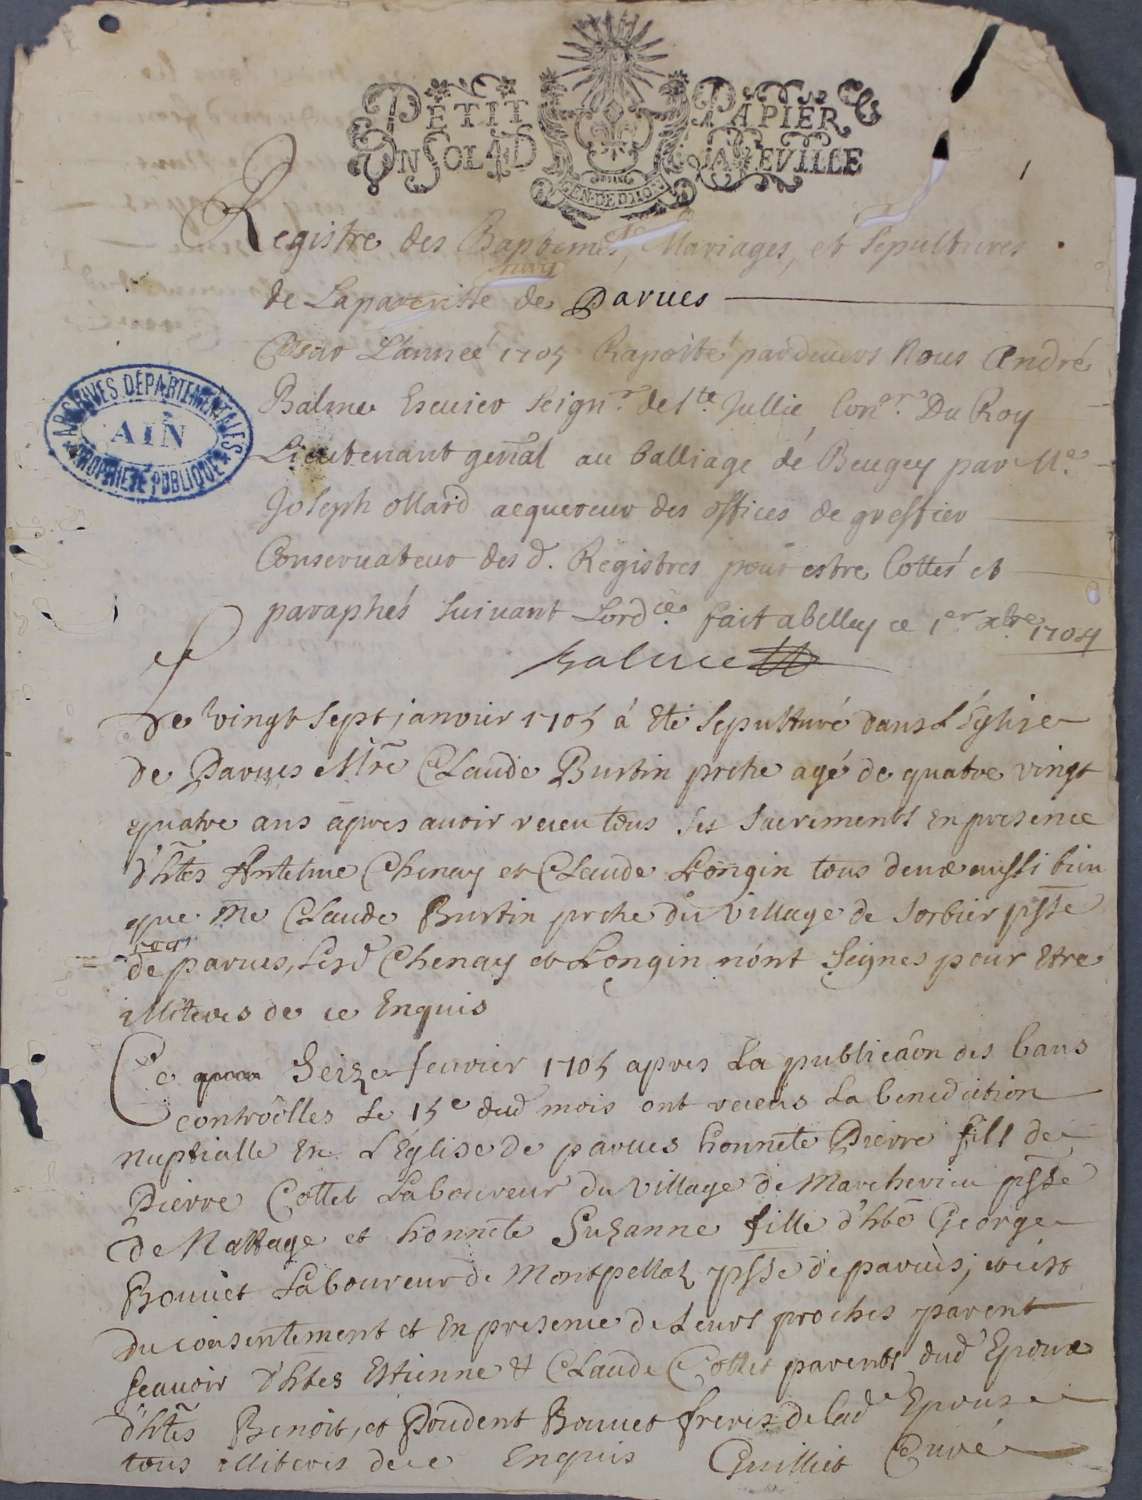 PETIT PAPIER
UN SOL LA DEVILLE
GEN. DE DIJON
1
Registre des Baptemes, Mariages, et Sepultures
de Laparoisse de Parues
Pour L'année 1705 Raporté pardevers Nous André
Balme Escuier Seign.r de S.te Jullie, Con.er Du Roy
Lieutenant gen̄al au balliage de Beugey par M.e
Joseph Ollard acquereur des offices de greffier
Conservateur des d. Registres pour estre Cottés et
paraphés suivant Lord.ce fait abelley ce 1.er xbre 1704
Balme
ARCHIVES DÉPARTEMENTALES
AIN
PROPRIÉTÉ PUBLIQUE
Le vingt sept janvier 1705 á eté sepulturé dans L'Église
de Parues Mr̃e Claude Burtin prtre agé de quatre vingt
quatre ans apres avoir receu tous ses sacrements en presence
d'htes Antelme Chenay et Claude Longin tous deux aussi bien
que Me Claude Burtin prtre du village de Sorbier psse
de parues, Lesd Chenay et Longin n'ont signes pour etre
illiteres de ce Enquis
Ce Seize fevrier 1705 apres La publicãon des bans
controlles Le 15e dud mois ont receus La benediction
nuptialle En L'Église de parues honnete Pierre fils de
Pierre Cottet Laboureur du village de Marcherieu psse
de Nattage et honnete Suzanne fille d'hte George
Bouvet Laboureur de Montpellaz psse de parues; et c'est
du consentement et En presence de Leurs proches parent
scavoir d'htes Estienne & Claude Cottet parents dud' Epoux
d'htes Benoit, et Poudent Bouvet freres de lad.e Epouse
tous illiteres de ce Enquis Guilliet Curé